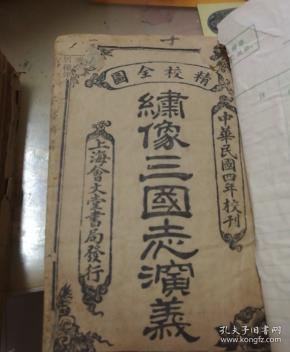 精校全圖
中華民國四年校刊
繡像三國志演義
上海會文堂書局發行
孔夫子旧书网